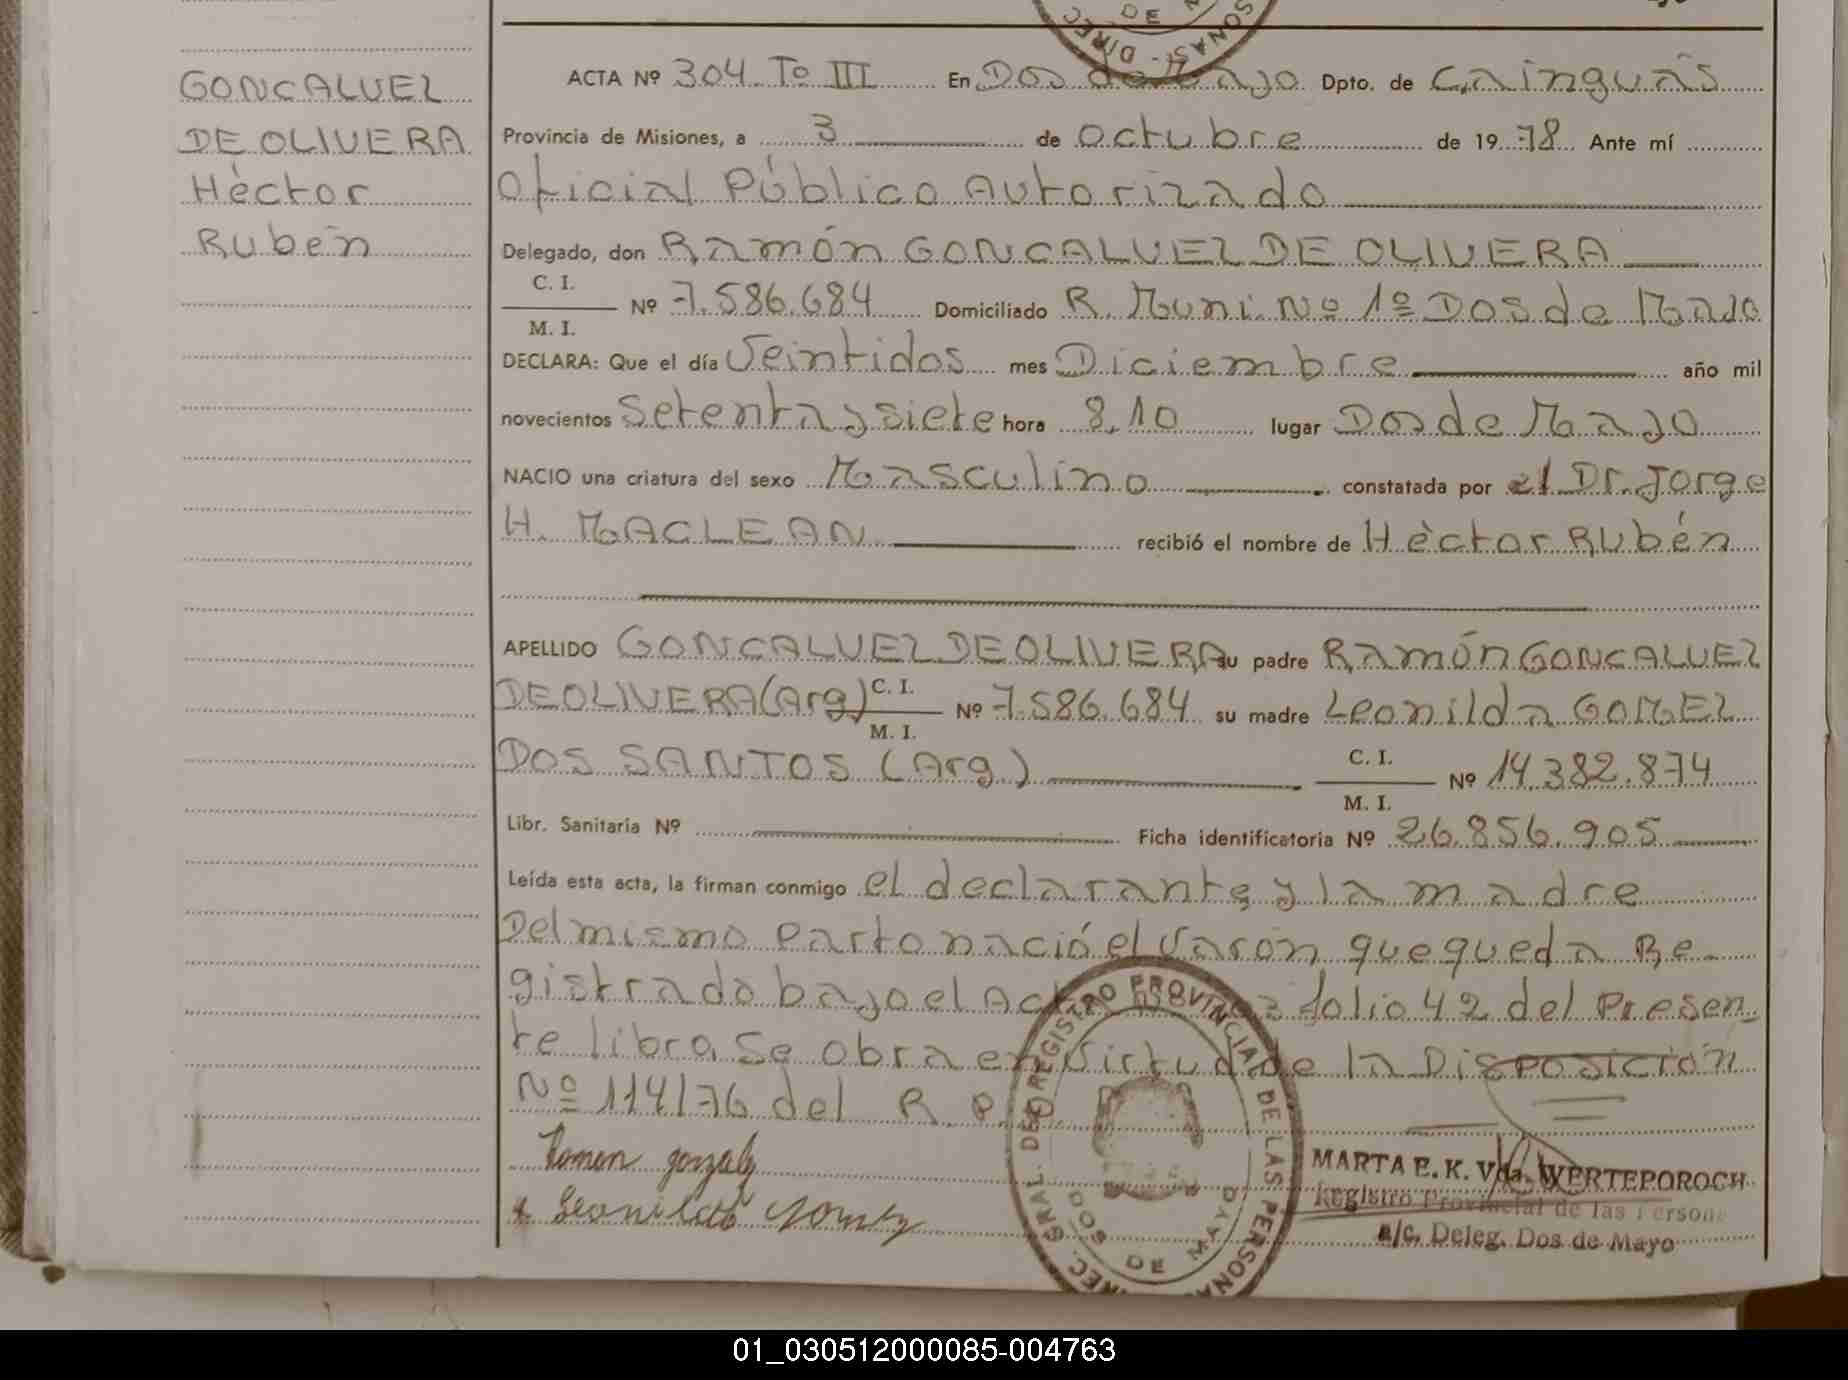 GONCALUEZ
DE OLIVERA
Hèctor
Rubén
ACTA Nº 304 Tº III En Dos de Mayo Dpto. de Cainguás
Provincia de Misiones, a 3 de octubre de 1978 Ante mí
Oficial Público Autorizado
Delegado, don Ramón GONCALUEZ DE OLIVERA
C. I.
M. I.
Nº 7.586.684 Domiciliado R. Muni. Nº 1º Dos de Mayo
DECLARA: Que el día Veintidos mes Diciembre año mil
novecientos Setenta y siete hora 8,10 lugar Dos de Mayo
NACIO una criatura del sexo Masculino constatada por el Dr. Jorge
H. MACLEAN recibió el nombre de Hèctor Rubén
APELLIDO GONCALUEZ DE OLIVERA su padre Ramón GONCALUEZ
DE OLIVERA (Arg) C. I. M. I. Nº 7.586.684 su madre Leonilda GOMEZ
DOS SANTOS (Arg.) C. I. M. I. Nº 14.382.874
Libr. Sanitaria Nº Ficha identificatoria Nº 26.856.905
Leída esta acta, la firman conmigo el declarante y la madre
Del mismo parto nació el varón que queda Re-
gistrado bajo el Acta folio 42 del Presen-
te libro, se obra en virtud de la Disposición
Nº 114/76 del R. P.
Ramon gonzalez
Leonilda Gomez
DIREC. GRAL. DEL REGISTRO PROVINCIAL DE LAS PERSONAS
DOS DE MAYO
MARTA E. K. Vda. WERTEPOROCH
Registro Provincial de las Persona
a/c. Deleg. Dos de Mayo
01_030512000085-004763